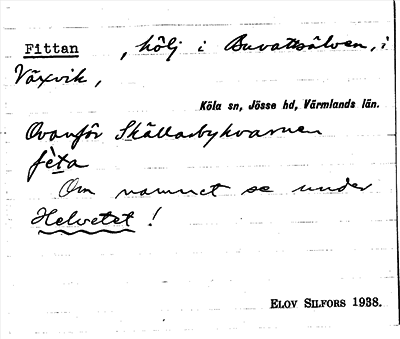 Fittan , hölj i Buvattsälven, i
Växvik,
Köla sn, Jösse hd, Värmlands län.
Ovanför Skällarbykvarnen
fèta
Om namnet se under
Helvetet !
ELOV SILFORS 1938.